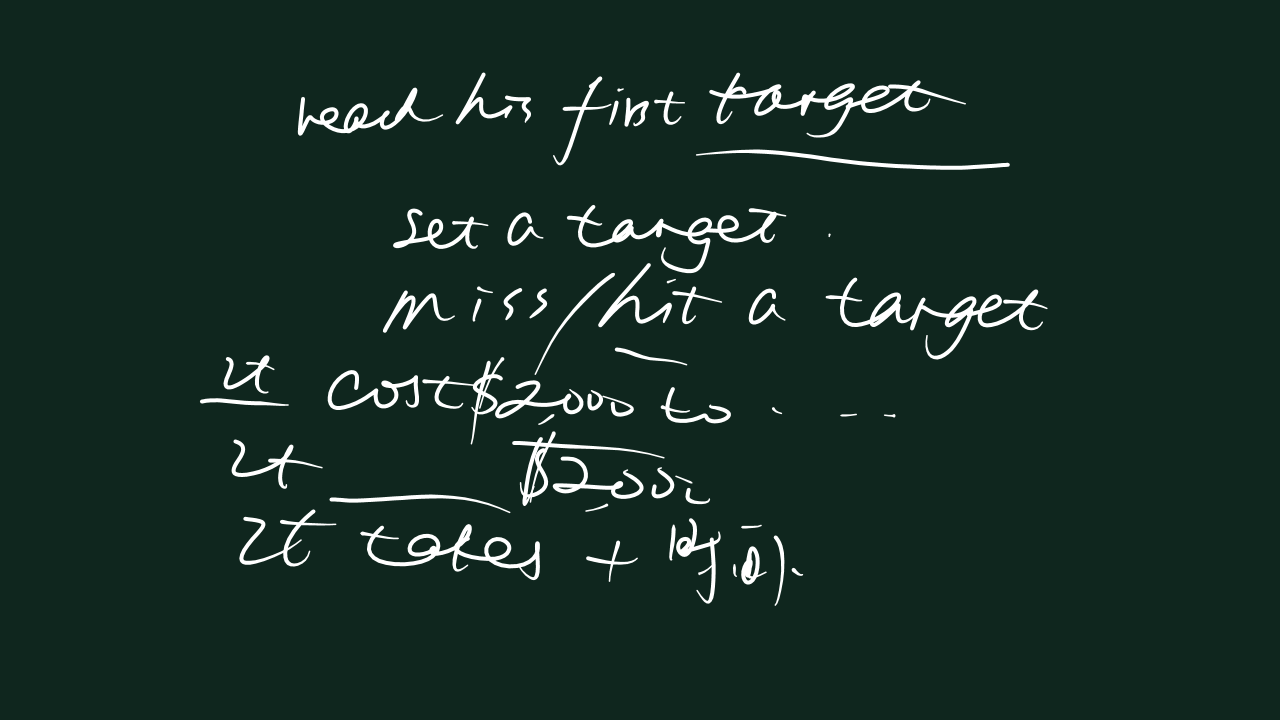 reach his first target
set a target.
miss/hit a target
It cost $2000 to ...
It $200
It takes + 时间